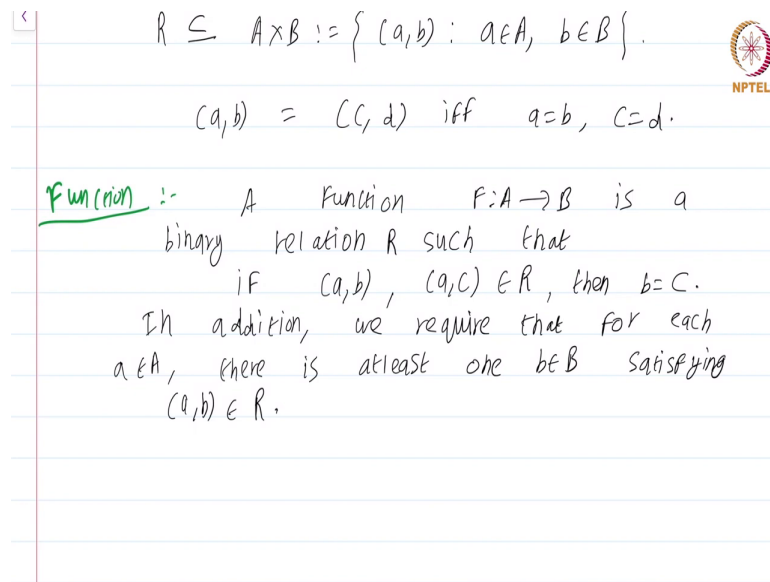 R ⊆ A×B := { (a,b) : a∈A, b∈B }.
NPTEL
(a,b) = (c,d) iff a=b, c=d.
Function :- A Function F:A→B is a
binary relation R such that
if (a,b), (a,c) ∈ R, then b=c.
In addition, we require that for each
a∈A, there is atleast one b∈B satisfying
(a,b) ∈ R.